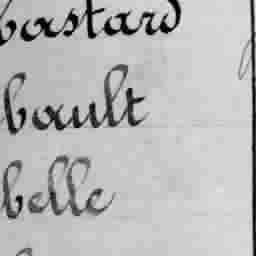 bastard
bault
belle